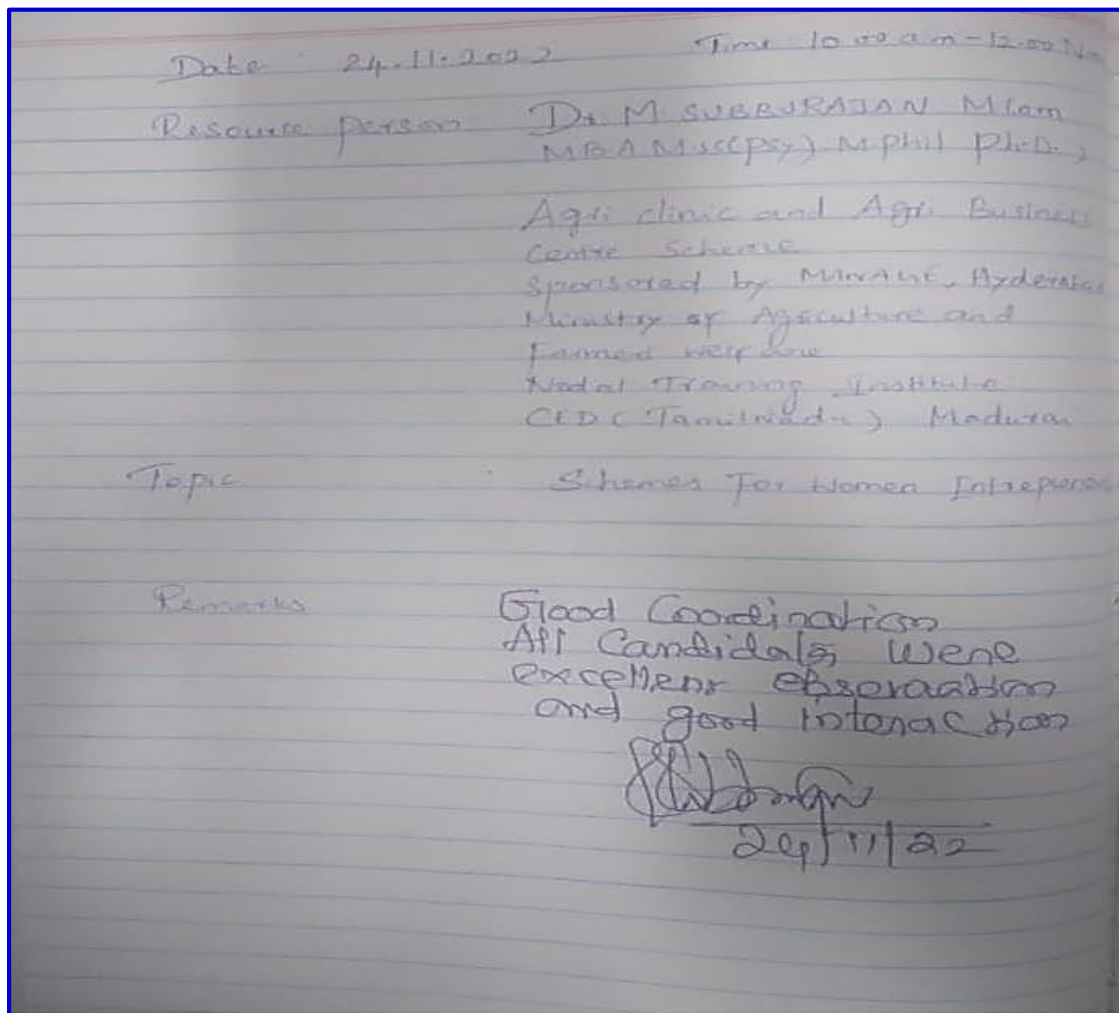 Date : 24.11.2022 Time 10.00 a.m - 12.00 N
Resource person Dr M SUBBURAJAN M.Com
MBA M.sc(psy) M.phil Ph.D.,
Agri clinic and Agri Business
Centre Scheme
Sponsored by MANAGE, Hyderabad
Ministry of Agriculture and
Farmers welfare
Nodal Training Institute
CEDC (Tamilnadu) Madurai
Topic : Schemes For Women Entrepreneu
Remarks Good Coordination
All Candidates were
excellent observation
and good interaction
24/11/22